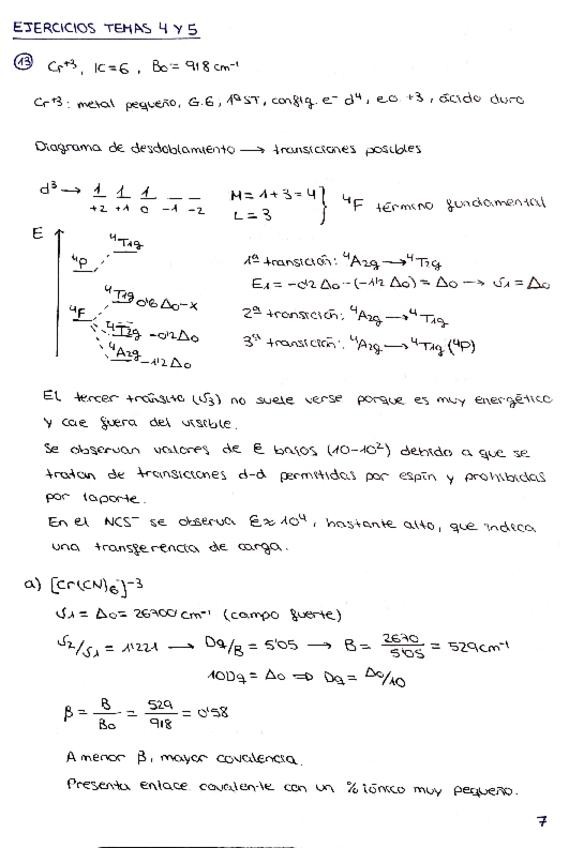 EJERCICIOS TEMAS 4 Y 5
13 Cr⁺³, IC=6, B₀=918 cm⁻¹
Cr⁺³: metal pequeño, G.6, 1ªST, config. e⁻ d⁴, e.o +3, ácido duro
Diagrama de desdoblamiento → transiciones posibles
d³ → 1 1 1 _ _ M=1+3=4 } ⁴F término fundamental
+2 +1 0 -1 -2 L=3
E
⁴T1g
⁴P
1ª transición: ⁴A2g → ⁴T2g
⁴T1g 0'6 Δo-x E1 = -0'2 Δo - (-1'2 Δo) = Δo → ν1 = Δo
⁴F
⁴T2g -0'2 Δo 2ª transición: ⁴A2g → ⁴T1g
⁴A2g -1'2 Δo 3ª transición: ⁴A2g → ⁴T1g (⁴P)
El tercer tránsito (ν3) no suele verse porque es muy energético
y cae fuera del visible.
Se observan valores de E bajos (10-10²) debido a que se
tratan de transiciones d-d permitidas por espín y prohibidas
por laporte.
En el NCS⁻ se observa E≈10⁴, bastante alto, que indica
una transferencia de carga.
a) [Cr(CN)6]⁻³
ν1 = Δo = 26700 cm⁻¹ (campo fuerte)
ν2/ν1 = 1'221 → Dq/B = 5'05 → B = 2670/5'05 = 529 cm⁻¹
10Dq = Δo ⇒ Dq = Δo/10
β = B/B₀ = 529/918 = 0'58
A menor β, mayor covalencia.
Presenta enlace covalente con un % iónico muy pequeño.
7